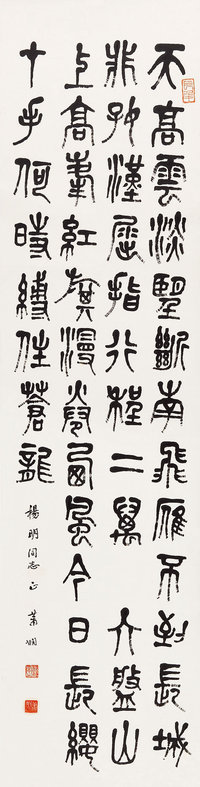 天高雲淡望斷南飛雁不到長城
非好漢屈指行程二萬六盤山
上高峯紅旗漫卷西風今日長纓
在手何時縛住蒼龍
楊明同志正 蕭嫻